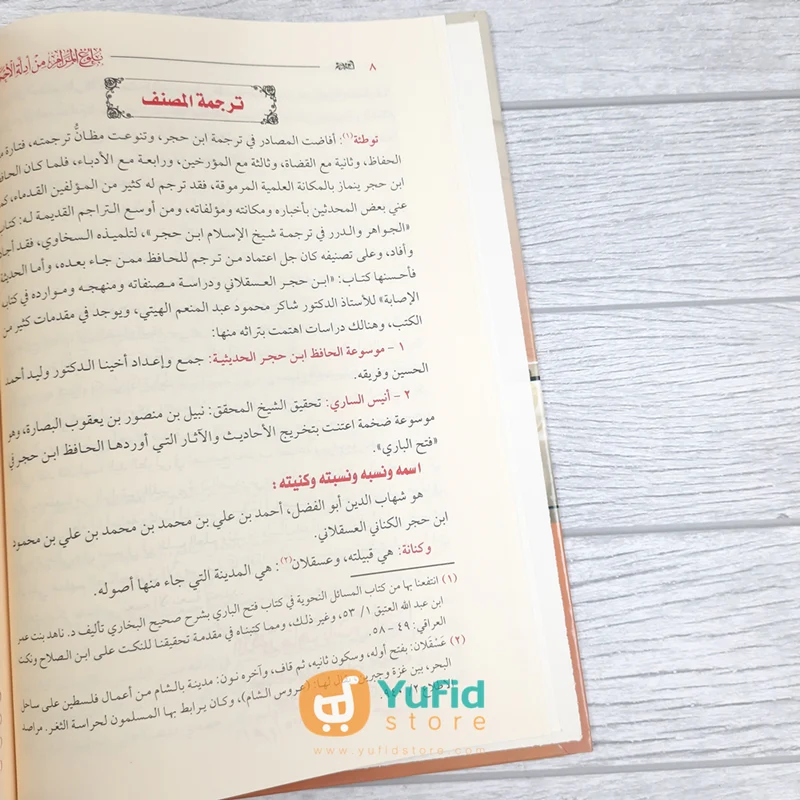 ٨
بلوغ المرام من أدلة
ترجمة المصنف
توطئة(١): أفاضت المصادر في ترجمة ابن حجر، وتنوعت مظانُّ ترجمته، فتارة
الحفاظ، وثانية مع القضاة، وثالثة مع المؤرخين، ورابعة مع الأدباء، فلما كان
ابن حجر ينماز بالمكانة العلمية المرموقة، فقد ترجم له كثير من المؤلفين القدماء،
عني بعض المحدثين بأخباره ومكانته ومؤلفاته، ومن أوسع التراجم القديمة له: كتاب
«الجواهر والدرر في ترجمة شيخ الإسلام ابن حجر»، لتلميذه السخاوي، فقد
وأفاد، وعلى تصنيفه كان جل اعتماد من ترجم للحافظ ممن جاء بعده، وأما الحديثة
فأحسنها كتاب: «ابن حجر العسقلاني ودراسة مصنفاته ومنهجه وموارده في كتاب
الإصابة» للأستاذ الدكتور شاكر محمود عبد المنعم الهيتي، ويوجد في مقدمات كثير من
الكتب، وهنالك دراسات اهتمت بتراثه منها:
١ - موسوعة الحافظ ابن حجر الحديثية: جمع وإعداد أخينا الدكتور وليد أحمد
الحسين وفريقه.
٢ - أنيس الساري: تحقيق الشيخ المحقق: نبيل بن منصور بن يعقوب البصارة، وهو
موسوعة ضخمة اعتنت بتخريج الأحاديث والآثار التي أوردها الحافظ ابن حجر في
«فتح الباري».
اسمه ونسبه ونسبته وكنيته:
هو شهاب الدين أبو الفضل، أحمد بن علي بن محمد بن محمد بن علي بن محمود
ابن حجر الكناني العسقلاني.
وكنانة: هي قبيلته، وعسقلان(٢): هي المدينة التي جاء منها أصوله.
(١) انتفعنا بها من كتاب المسائل النحوية في كتاب فتح الباري بشرح صحيح البخاري تأليف د. ناهد بنت عمر
ابن عبد الله العتيق ١/ ٥٣، وغير ذلك، ومما كتبناه في مقدمة تحقيقنا للنكت على ابن الصلاح ونكت
العراقي: ٤٩ - ٥٨.
(٢) عَسْقَلان: بفتح أوله، وسكون ثانيه، ثم قاف، وآخره نون: مدينة بالشام من أعمال فلسطين على ساحل
البحر، بين غزة وجبرين، لها: (عروس الشام)، وكان يرابط بها المسلمون لحراسة الثغر.
Yufid
store
www.yufidstore.com